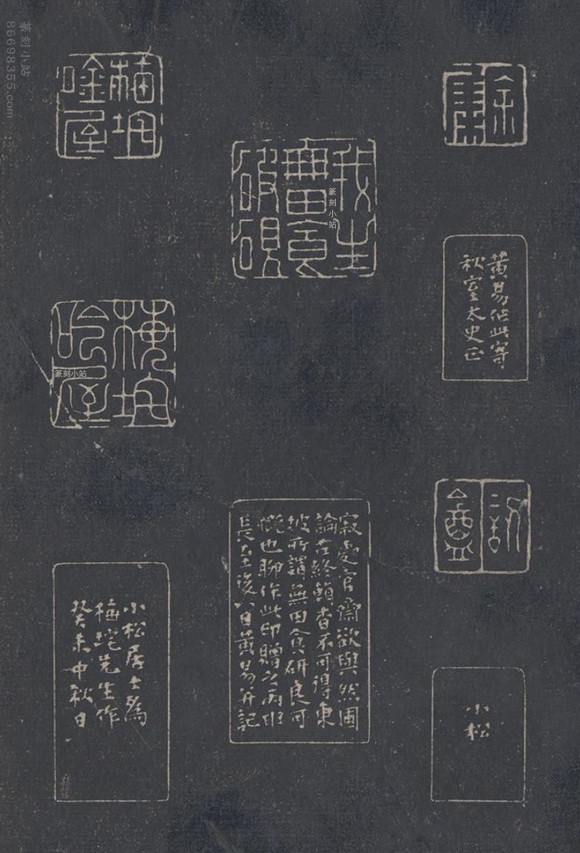 我生
無田食
破硯
黃易作此寄
秋室太史正
小松
寂處官齋欲與然圃
論古終願杳不可得東
坡所謂無田食研良可
慨也聊作此印贈之丙
長至後八日黃易并記
梅垞
吟屋
梅垞
吟屋
小松居士為
梅垞先生作
癸未中秋日
篆刻小站
86698355.com
篆刻小站
篆刻小站